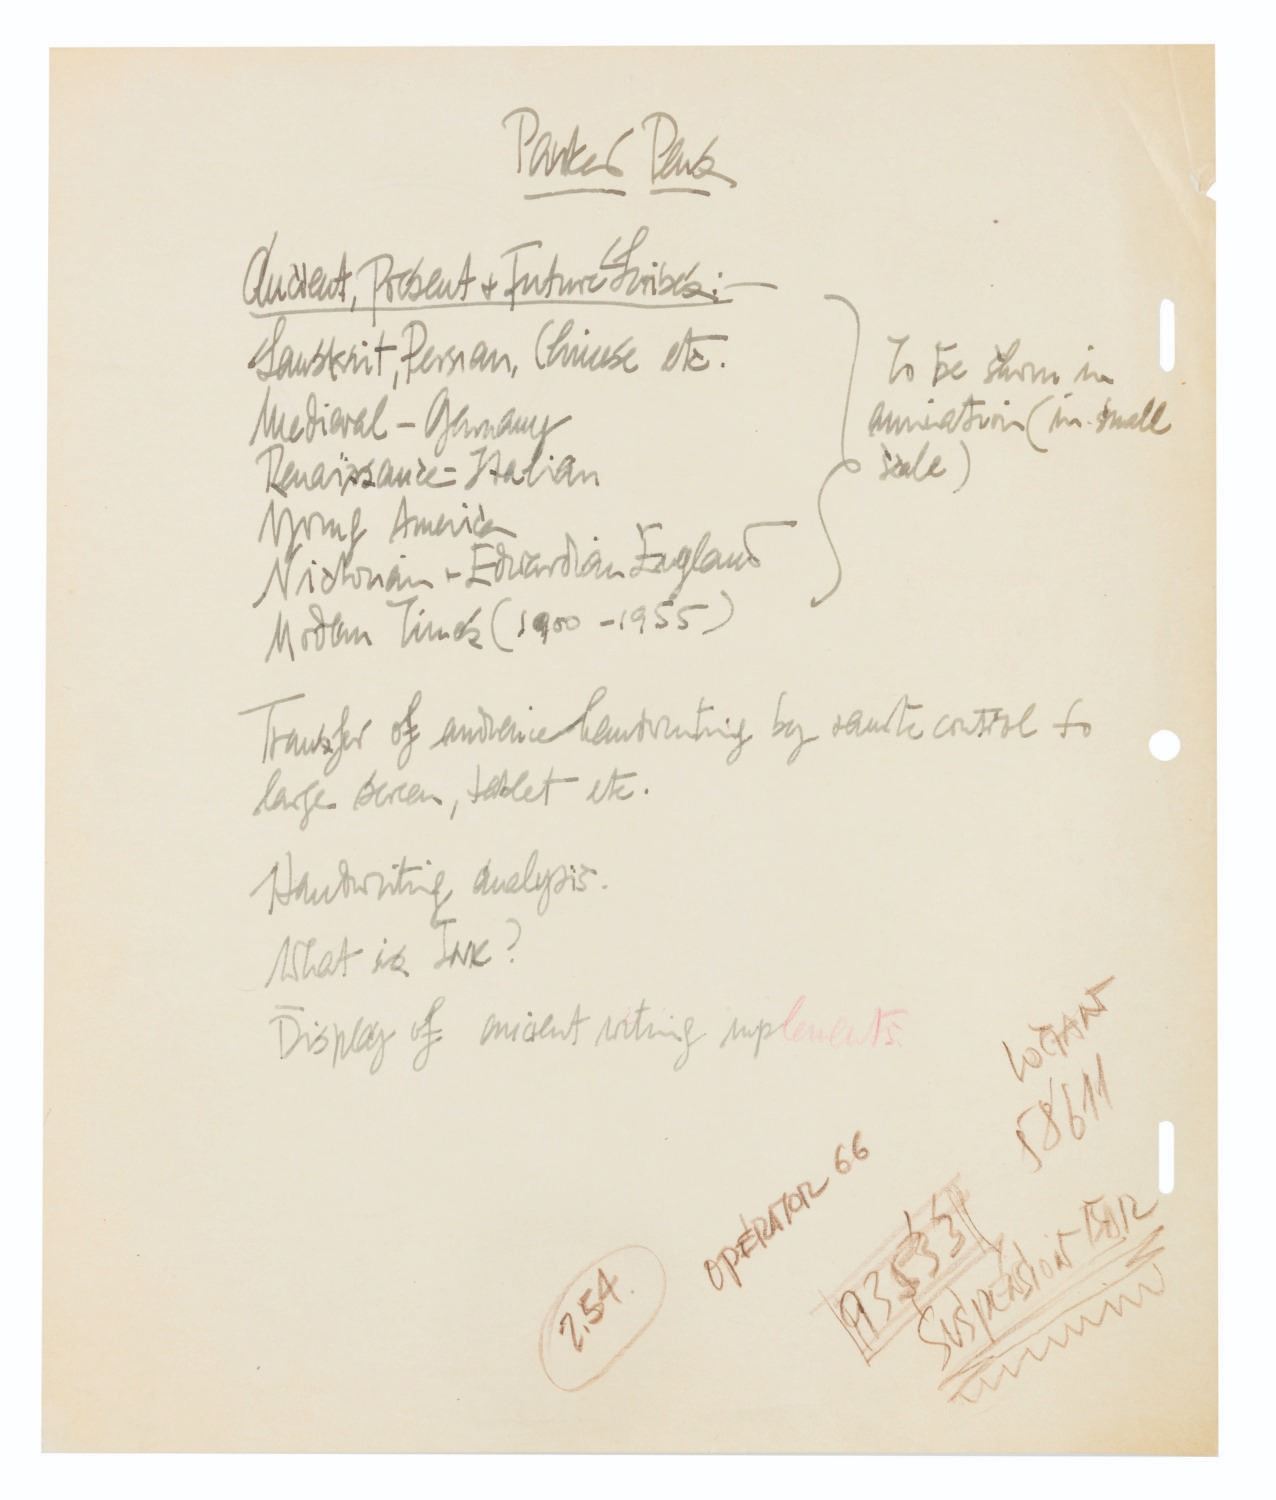 Parker Pens
Ancient, Present & Future Scribes:—
Sanskrit, Persian, Chinese etc.
Medieval - Germany
Renaissance = Italian
Young America
Victorian - Edwardian England
Modern Times (1900 - 1955)
To be shown in
animation (in small
scale)
Transfer of audience handwriting by remote control to
large screen, tablet etc.
Handwriting analysis.
What is Ink?
Display of ancient writing implements.
58611
OPERATOR 66
93533
SUSPENSION BAR
2.54.